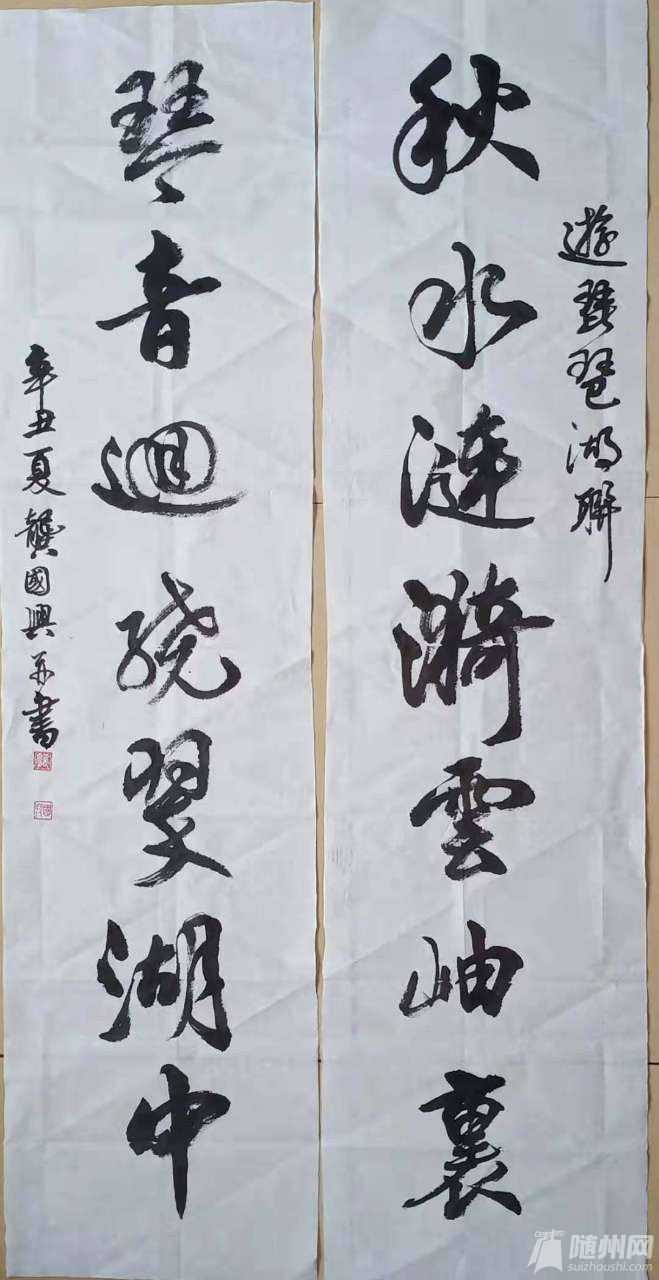 遊琵琶湖聯
秋水漣漪雲岫裏
琴音迴繞翠湖中
辛丑夏龔國興并書
随州网
suizhoushi.com